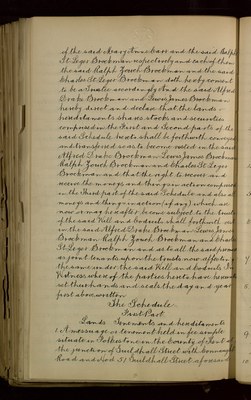 of the said Henry Anne base and the said Ralph
St Leger Brockman respectively and each of them
the said Ralph Zouch Brockman and the said
Charles St Leger Brockman doth hereby consent
to be a Trustee accordingly And the said Alfred
Drake Brockman and Lewis James Brockman
hereby direct and declare that the lands
hereditaments shares stocks and securities
comprised in the First and Second parts of the
said Schedule hereto shall be forthwith conveyed
and transferred so as to become vested in the said
Alfred Drake Brockman Lewis James Brockman
Ralph Zouch Brockman and Charles St Leger
Brockman and that the right to recover and
receive the moneys and things in action comprised
in the Third part of the said Schedule and all other
moneys and things in action (if any) which are
now or may hereafter become subject to the trusts
of the said Will and Codicils shall forthwith vest
in the said Alfred Drake Brockman Lewis James
Brockman Ralph Zouch Brockman and Charles
St Leger Brockman and as to all the said premises
as joint tenants upon the trusts now affecting
the same under the said Will and Codicils In
Witness whereof the parties hereto have hereunto
set their hands and seals the day and year
first above written
The Schedule
First Part
Lands Tenements and hereditaments
1 A messuage or tenement held in fee simple
situate in Folkestone in the County of Kent at
the junction of Guildhall Street with
Road and No 51 Guildhall Street aforesaid